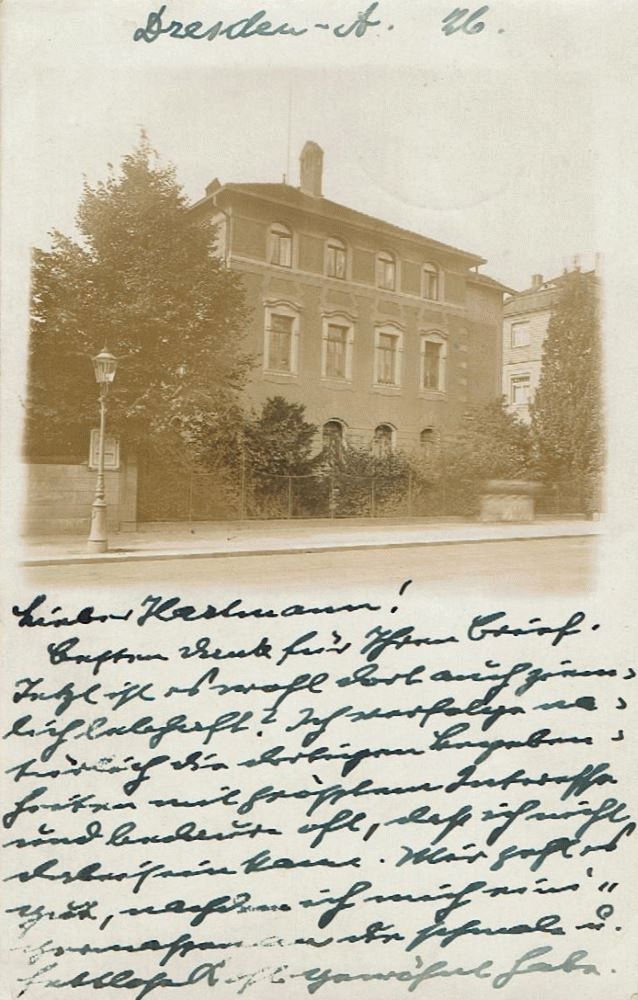 Dresden-A. 26.
Lieber Hartmann!
Besten Dank für Ihren Brief.
Jetzt ist es wohl dort auch ziem-
lich lebhaft? Ich verfolge na-
türlich die dortigen Begeben-
heiten mit größtem Interesse
und bedaure oft, daß ich nicht
dabei sein kann. Mir geht es
gut, nachdem ich mich eini-
germassen an die schmale u.
fettlose Kost gewöhnt habe.